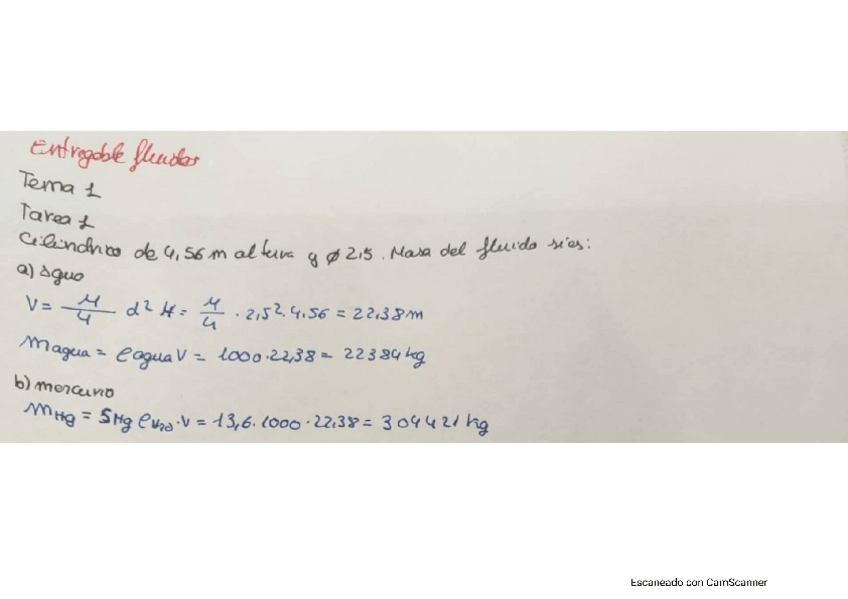 Entregable fluidos
Tema 1
Tarea 1
Cilindrico de 4,56 m altura y ø 2,5. Masa del fluido si es:
a) agua
V = π/4 d² H = π/4 · 2,5² · 4,56 = 22,38 m
m agua = ρ agua V = 1000 · 22,38 = 22384 kg
b) mercurio
m Hg = S Hg ρ H₂O · V = 13,6 · 1000 · 22,38 = 304421 kg
Escaneado con CamScanner